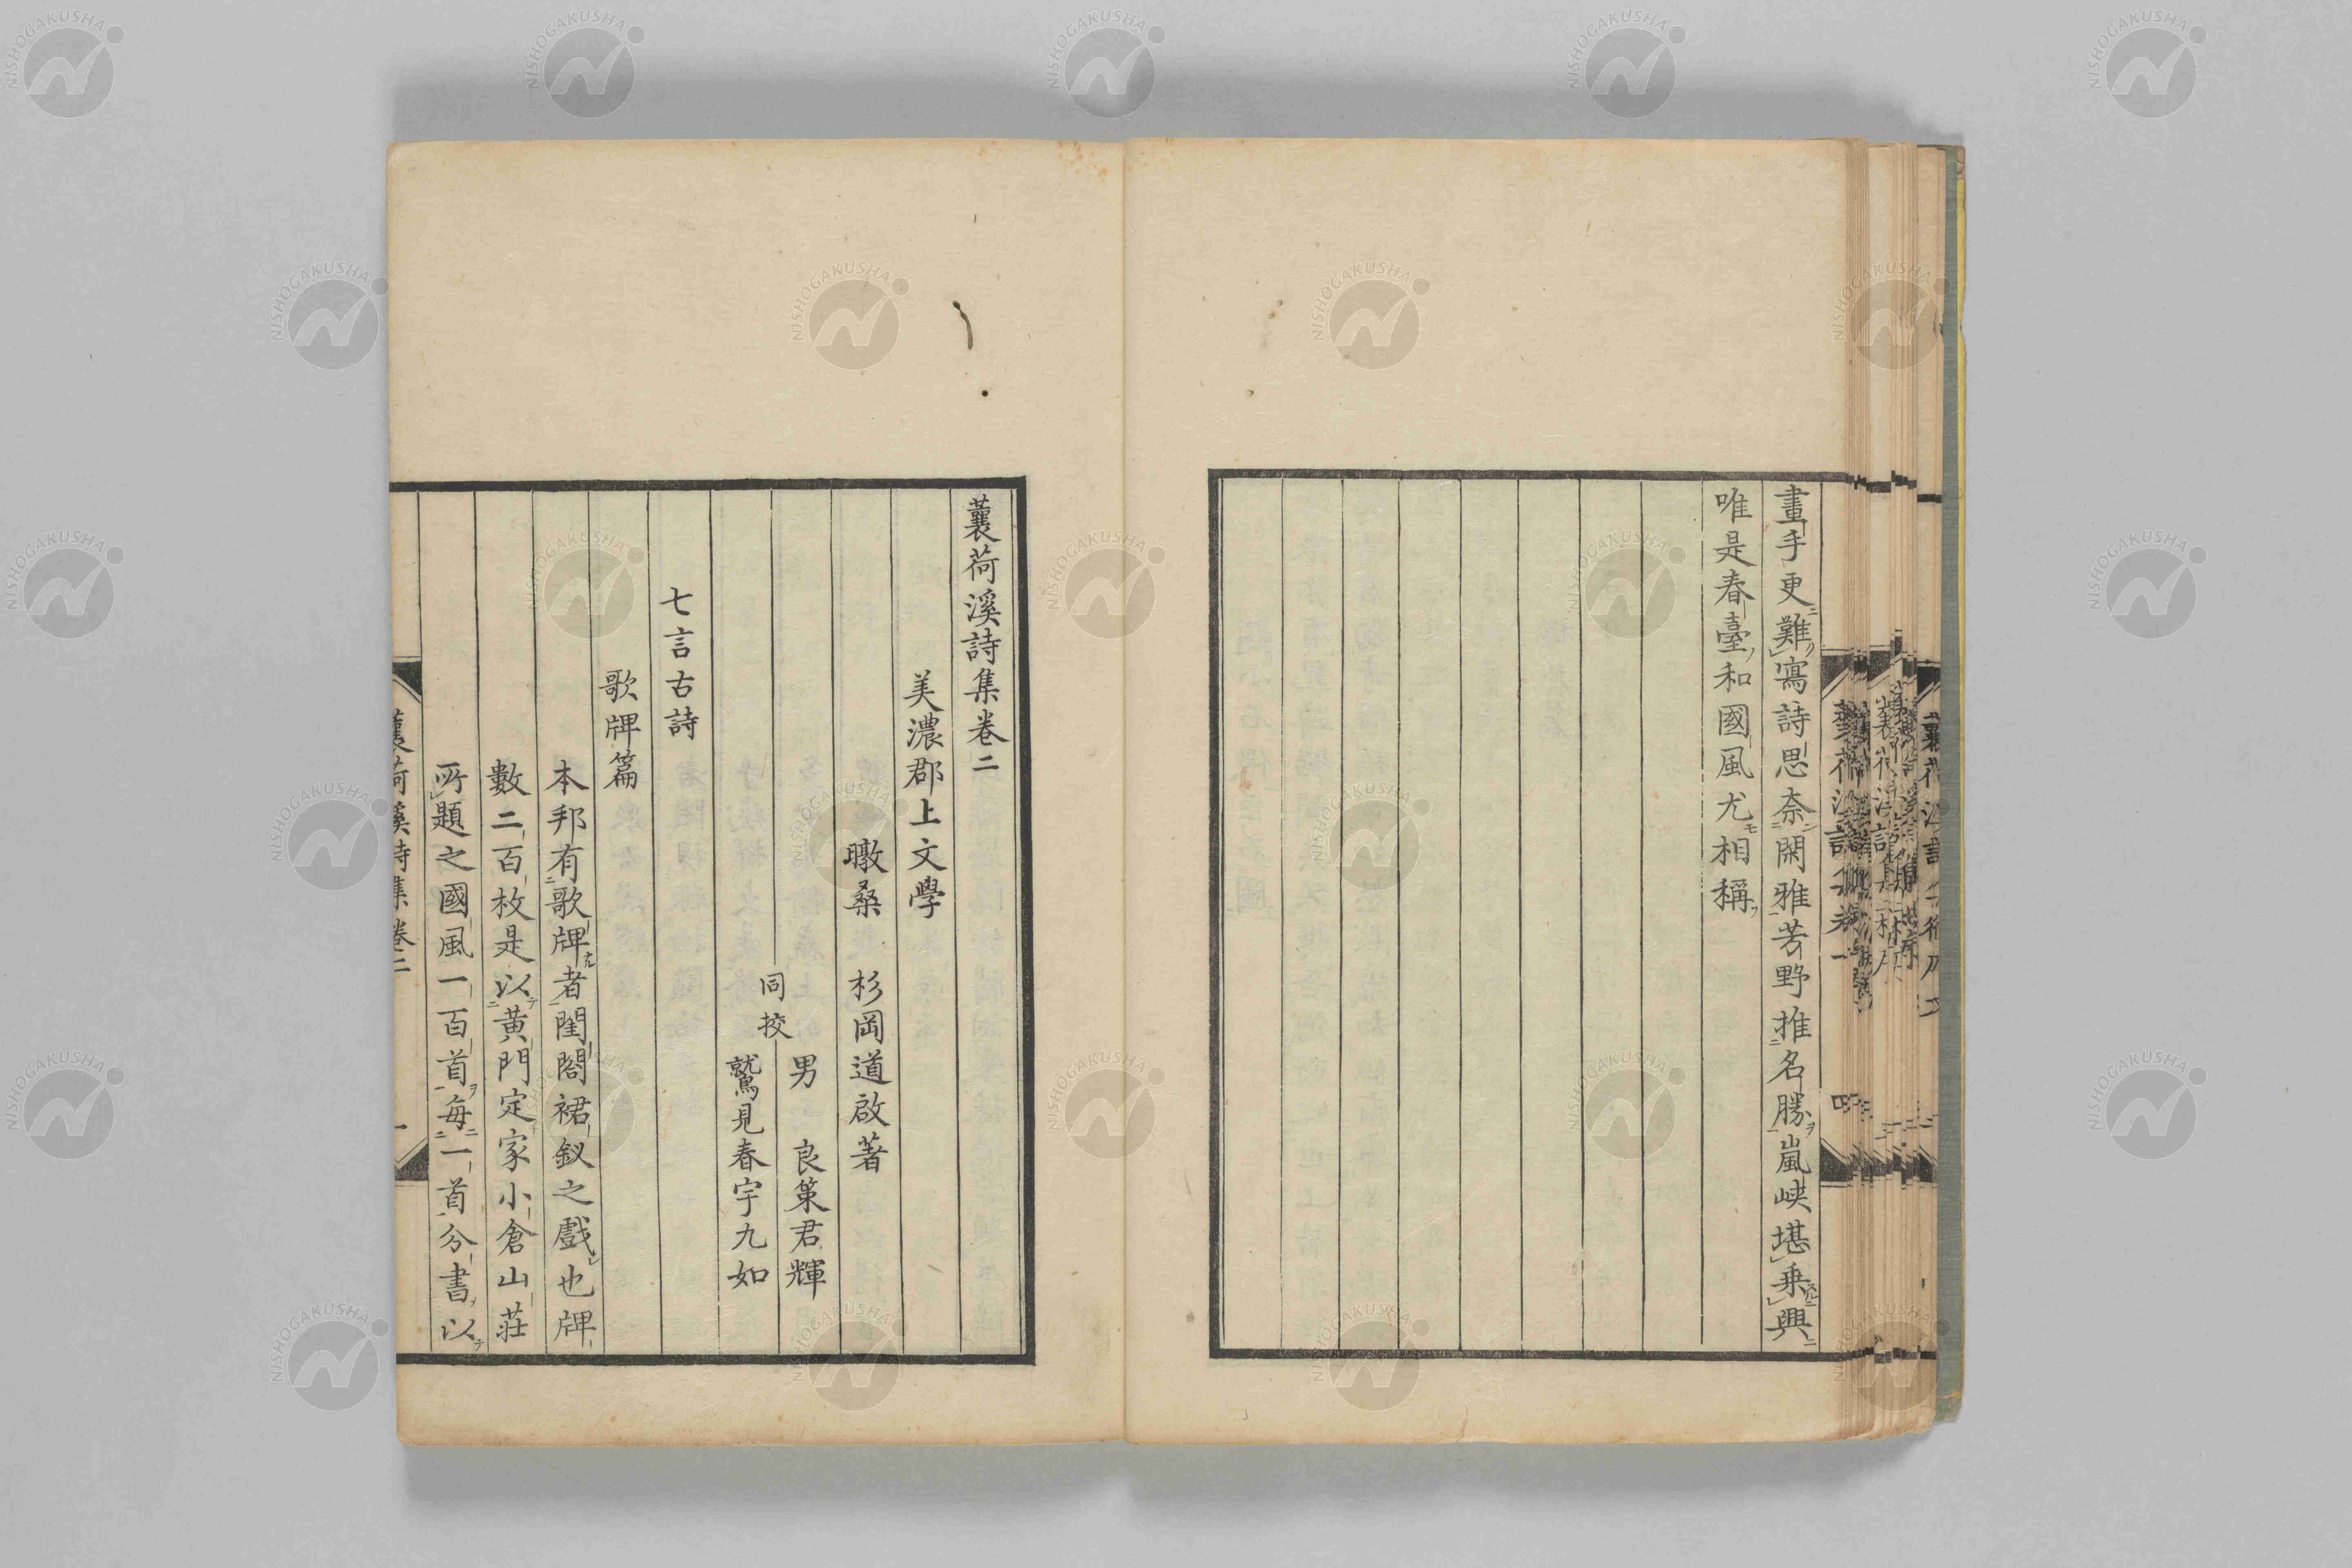 畫手更難寫詩思奈閑雅芳野推名勝嵐峽堪乗興
唯是春臺和國風尤相稱
蘘荷溪詩集卷二
美濃郡上文學
暾桑 杉岡道啟著
男 良策君輝
同挍
鷲見春宇九如
七言古詩
歌牌篇
本邦有歌牌者閨閤裙釵之戲也牌
數二百枚是以黃門定家小倉山莊
所題之國風一百首每一首分書以
蘘荷溪詩集 卷二 一
NISHOGAKUSHA